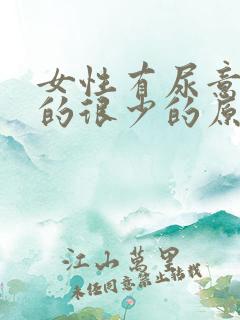 女性有尿意
的很少的原
江山萬里
未经同意禁止转载